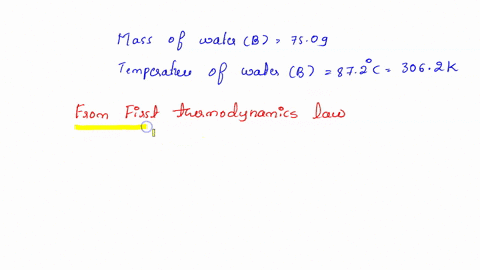 Mass of water (B) = 75.0g
Temperature of water (B) = 87.2°C = 306.2K
From First thermodynamics law